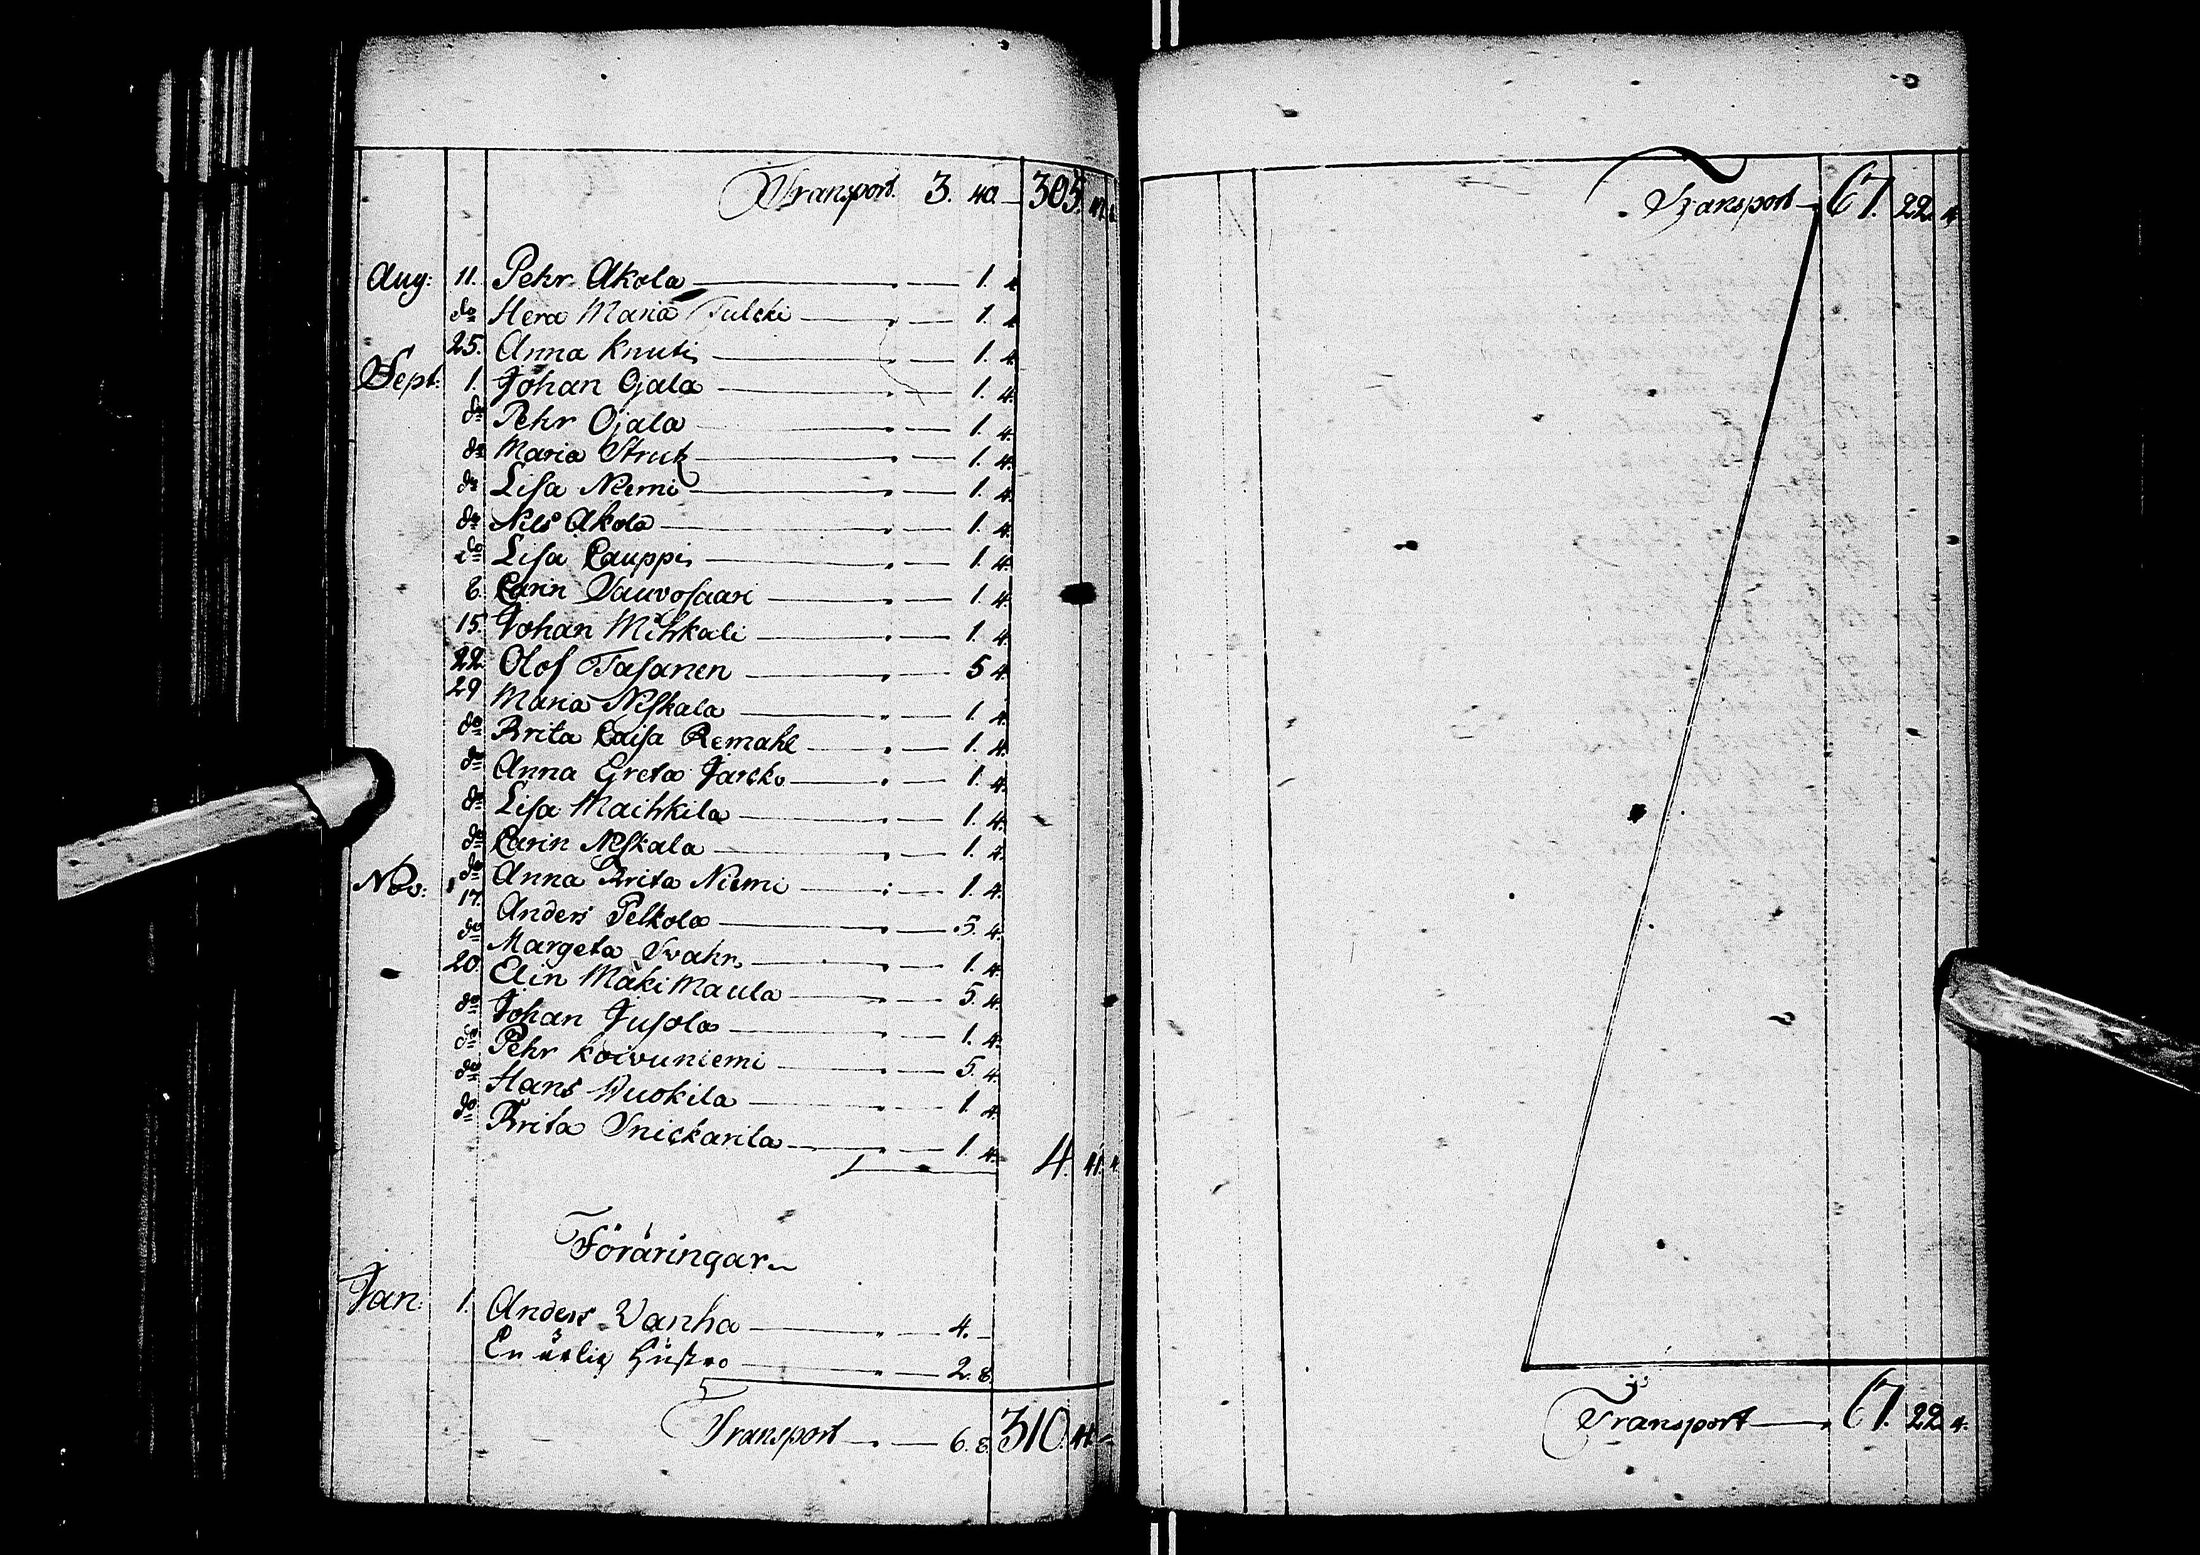 Transport. 3. 40. 305.
Aug: 11. Pehr Akola 1. 4.
do Hera Maria Tulcki 1. 4.
25. Anna Knuti 1. 4.
Sept: 1. Johan Ojala 1. 4.
do Pehr Ojala 1. 4.
do Maria Struk 1. 4.
do Lisa Niemi 1. 4.
do Nils Akola 1. 4.
do Lisa Cauppi 1. 4.
8. Carin Sauvosaari 1. 4.
15. Johan Mihkali 1. 4.
22. Olof Tasanen 5 4.
29 Maria Niskala 1. 4.
do Brita Caisa Remahl 1. 4.
do Anna Greta Jarcko 1. 4.
do Lisa Maihkila 1. 4.
do Carin Niskala 1. 4.
do Anna Brita Niemi 1. 4.
Nov: 17. Anders Pelkola 5. 4.
do Margeta Svahn 1. 4.
20. Elin Mäki Maula 5. 4.
do Johan Jusola 1. 4.
do Pehr Koivuniemi 5. 4.
do Hans Wuokila 1. 4.
do Brita Snickarila 1. 4.
4. 41. 4.
Föräringar
Jan: 1. Anders Wanha 4.
En ärlig Hustro 2. 8.
Transport 6. 8. 310. 41.
Transport 67. 22. 4.
Transport 67. 22. 4.